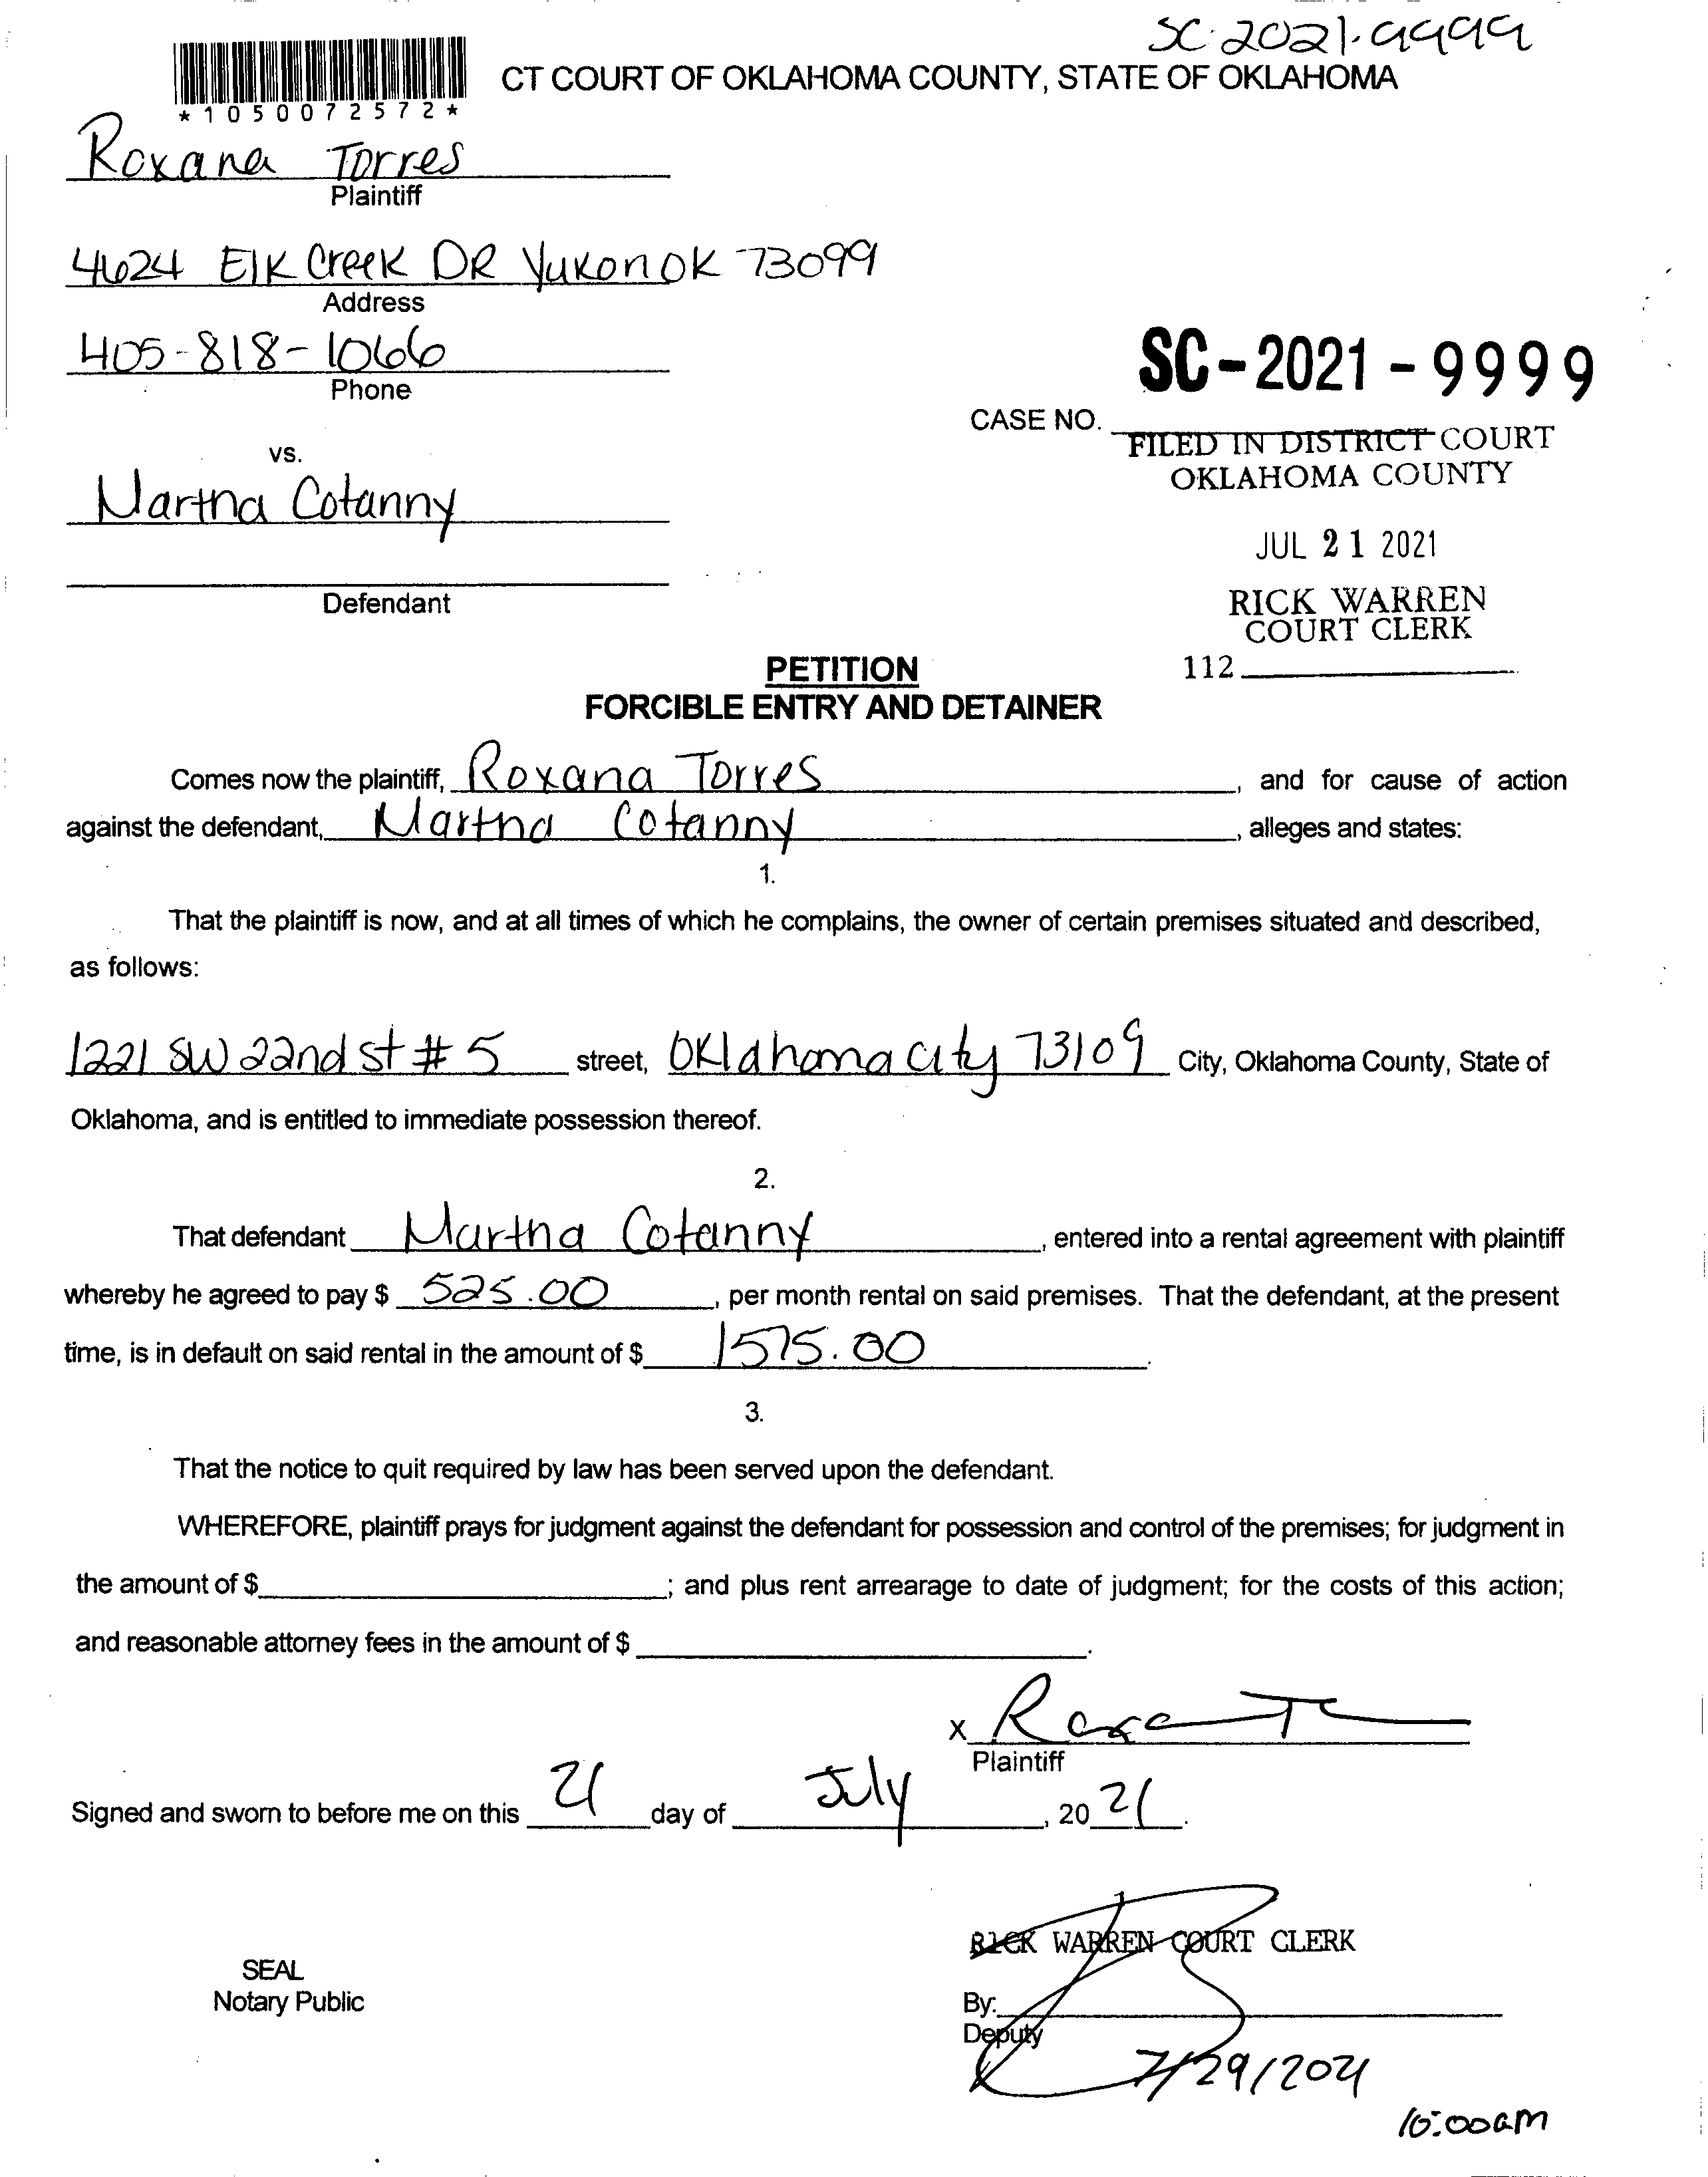 SC-2021-9999
CT COURT OF OKLAHOMA COUNTY, STATE OF OKLAHOMA
*1050072572*
Roxana Torres
Plaintiff
4624 Elk Creek DR Yukon OK 73099
Address
405-818-1066
Phone
SC-2021-9999
CASE NO.
FILED IN DISTRICT COURT
OKLAHOMA COUNTY
vs.
Martha Cotanny
JUL 21 2021
Defendant
RICK WARREN
COURT CLERK
112
PETITION
FORCIBLE ENTRY AND DETAINER
Comes now the plaintiff, Roxana Torres, and for cause of action
against the defendant, Martha Cotanny, alleges and states:
1.
That the plaintiff is now, and at all times of which he complains, the owner of certain premises situated and described,
as follows:
1221 SW 22nd St # 5 street, Oklahoma City 73109 City, Oklahoma County, State of
Oklahoma, and is entitled to immediate possession thereof.
2.
That defendant Martha Cotanny, entered into a rental agreement with plaintiff
whereby he agreed to pay $ 525.00, per month rental on said premises. That the defendant, at the present
time, is in default on said rental in the amount of $ 1575.00.
3.
That the notice to quit required by law has been served upon the defendant.
WHEREFORE, plaintiff prays for judgment against the defendant for possession and control of the premises; for judgment in
the amount of $; and plus rent arrearage to date of judgment; for the costs of this action;
and reasonable attorney fees in the amount of $.
X
Plaintiff
Signed and sworn to before me on this 21 day of July, 2021.
RICK WARREN COURT CLERK
SEAL
Notary Public
By:
Deputy
7/29/2021
10:00am